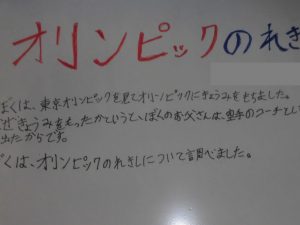 オリンピックのれき
ぼくは、東京オリンピックを見てオリンピックにきょうみをもちました。
ぜきょうみをもったかというと、ぼくのお父さんは、空手のコーチとし
出たからです。
ぼくは、オリンピックのれきしについて調べました。